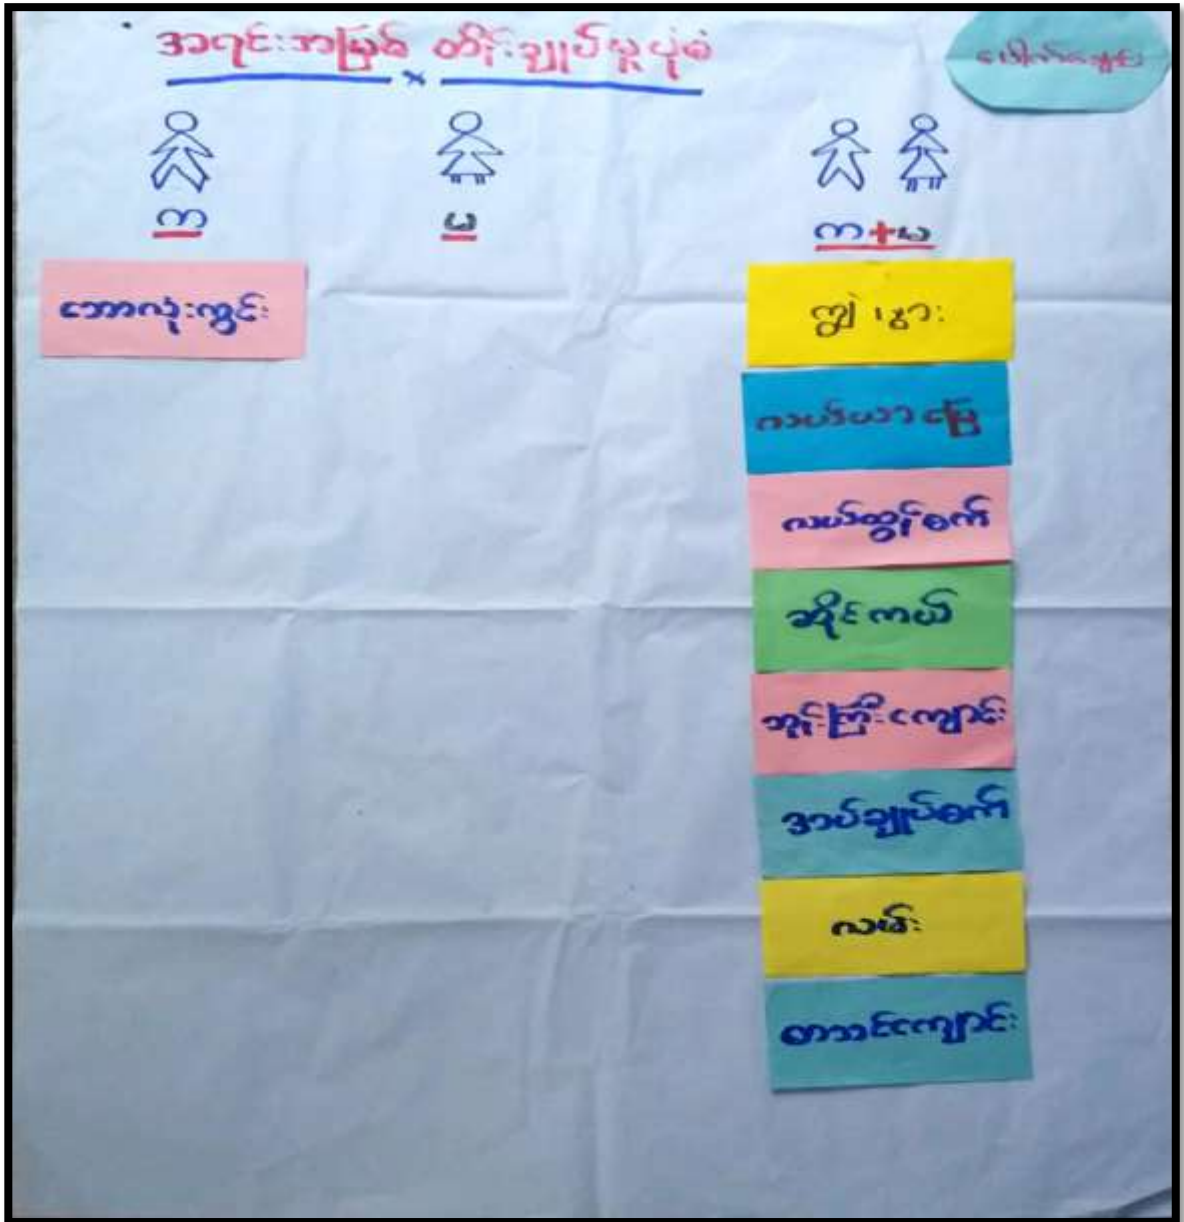 အရင်းအမြစ် ထိန်းချုပ်မှုပုံစံ
က
မ
က+မ
ဘောလုံးကွင်း
ကျွဲ ၊ နွား
လယ်ယာမြေ
လယ်ထွန်စက်
ဆိုင်ကယ်
ဘုန်းကြီးကျောင်း
အပ်ချုပ်စက်
လမ်း
စာသင်ကျောင်း